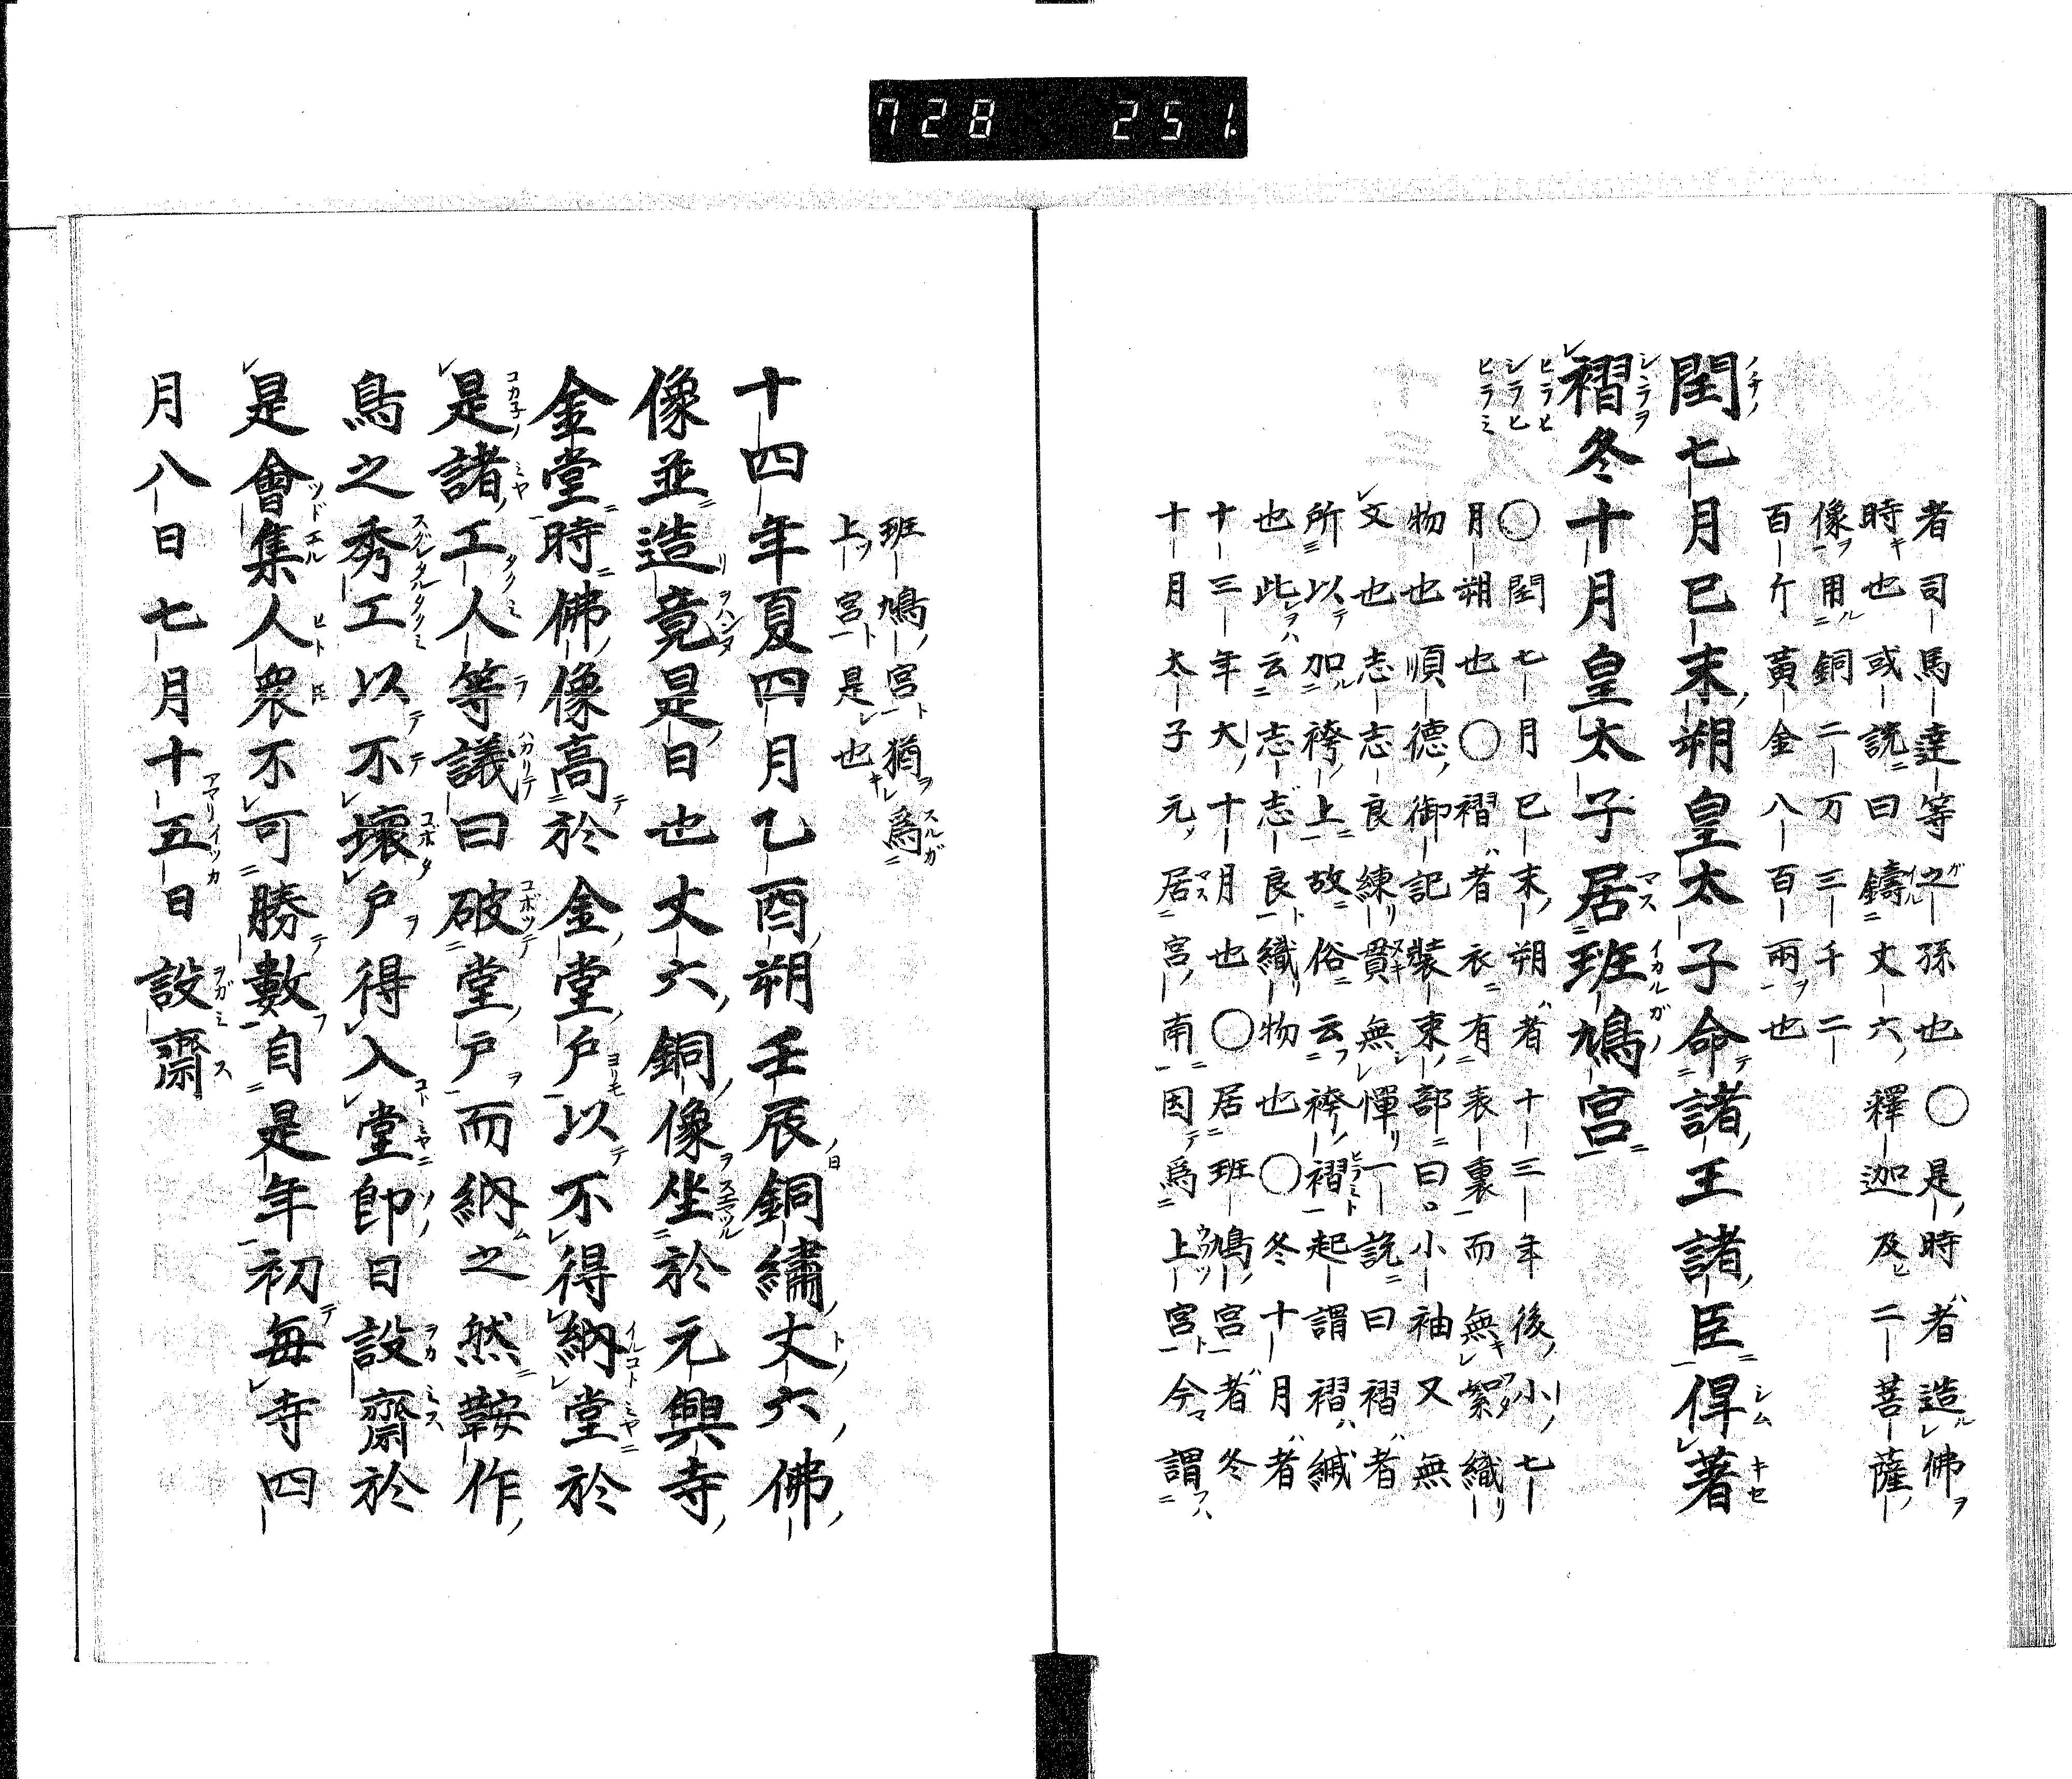 728 251.
者司馬達等之孫也○是時者造佛
時也或説曰鑄丈六釋迦及二菩薩
像用銅二万三千二
百斤黃金八百兩也
閏七月巳未朔皇太子命諸王諸臣俾著
褶冬十月皇太子居班鳩宮
○閏七月巳未朔者十三年後小七
月朔也○褶者衣有表裏而無絮織
物也順德御記裝束部曰小袖又無
文也志志良練貫無憚一説曰褶者
所以加袴上故俗云袴褶起謂褶緘
也此云志志良織物也○冬十月者
十三年大十月也○居班鳩宮者冬
十月太子元居宮南因爲上宮今謂
班鳩宮猶爲
上宮是也
十四年夏四月乙酉朔壬辰銅繡丈六佛
像並造竟是日也丈六銅像坐於元興寺
金堂時佛像高於金堂戶以不得納堂於
是諸工人等議曰破堂戶而納之然鞍作
鳥之秀工以不壞戶得入堂即日設齋於
是會集人衆不可勝數自是年初每寺四
月八日七月十五日設齋